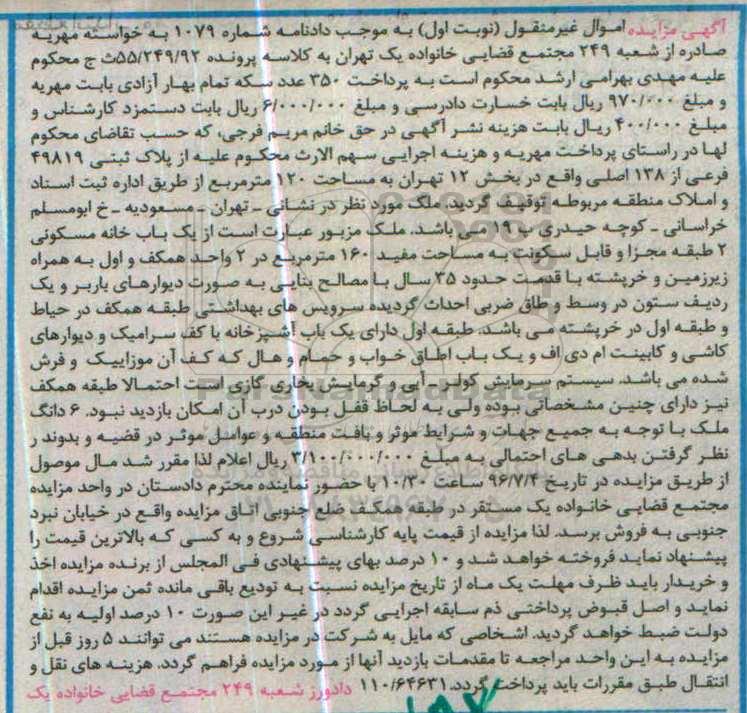 آگهی مزایده اموال غیرمنقول (نوبت اول) به موجب دادنامه شماره ۱۰۷۹ به خواسته مهریه
صادره از شعبه ۲۴۹ مجتمع قضایی خانواده یک تهران به کلاسه پرونده ۵۵/۲۴۹/۹۲ث ج محکوم
علیه مهدی بهرامی ارشد محکوم است به پرداخت ۳۵۰ عدد سکه تمام بهار آزادی بابت مهریه
و مبلغ ۹۷۰/۰۰۰ ریال بابت خسارت دادرسی و مبلغ ۶/۰۰۰/۰۰۰ ریال بابت دستمزد کارشناس و
مبلغ ۴۰۰/۰۰۰ ریال بابت هزینه نشر آگهی در حق خانم مریم فرجی، که حسب تقاضای محکوم
لها در راستای پرداخت مهریه و هزینه اجرایی سهم الارث محکوم علیه از پلاک ثبتی ۴۹۸۱۹
فرعی از ۱۳۸ اصلی واقع در بخش ۱۲ تهران به مساحت ۱۲۰ مترمربع از طریق اداره ثبت اسناد
و املاک منطقه مربوطه توقیف گردید. ملک مورد نظر در نشانی ـ تهران ـ مسعودیه ـ خ ابومسلم
خراسانی ـ کوچه حیدری پ ۱۹ می باشد. ملک مزبور عبارت است از یک باب خانه مسکونی
۲ طبقه مجزا و قابل سکونت به مساحت مفید ۱۶۰ مترمربع در ۲ واحد همکف و اول به همراه
زیرزمین و خرپشته با قدمت حدود ۳۵ سال با مصالح بنایی به صورت دیوارهای باربر و یک
ردیف ستون در وسط و طاق ضربی احداث گردیده سرویس های بهداشتی طبقه همکف در حیاط
و طبقه اول در خرپشته می باشد. طبقه اول دارای یک باب آشپزخانه با کف سرامیک و دیوارهای
کاشی و کابینت ام دی اف و یک باب اطاق خواب و حمام و هال که کف آن موزاییک و فرش
شده می باشد. سیستم سرمایش کولر ـ آبی و گرمایش بخاری گازی است احتمالا طبقه همکف
نیز دارای چنین مشخصاتی بوده ولی به لحاظ قفل بودن درب آن امکان بازدید نبود. ۶ دانگ
ملک با توجه به جمیع جهات و شرایط موثر و بافت منطقه و عوامل موثر در قضیه و بدوند ر
نظر گرفتن بدهی های احتمالی به مبلغ ۳/۱۰۰/۰۰۰/۰۰۰ ریال اعلام لذا مقرر شد مال موصول
از طریق مزایده در تاریخ ۹۶/۷/۴ ساعت ۱۰/۳۰ با حضور نماینده محترم دادستان در واحد مزایده
مجتمع قضایی خانواده یک مستقر در طبقه همکف ضلع جنوبی اتاق مزایده واقع در خیابان نبرد
جنوبی به فروش برسد. لذا مزایده از قیمت پایه کارشناسی شروع و به کسی که بالاترین قیمت را
پیشنهاد نماید فروخته خواهد شد و ۱۰ درصد بهای پیشنهادی فی المجلس از برنده مزایده اخذ
و خریدار باید ظرف مهلت یک ماه از تاریخ مزایده نسبت به تودیع باقی مانده ثمن مزایده اقدام
نماید و اصل قبوض پرداختی ذم سابقه اجرایی گردد در غیر این صورت ۱۰ درصد اولیه به نفع
دولت ضبط خواهد گردید. اشخاصی که مایل به شرکت در مزایده هستند می توانند ۵ روز قبل از
مزایده به این واحد مراجعه تا مقدمات بازدید آنها از مورد مزایده فراهم گردد. هزینه های نقل و
انتقال طبق مقررات باید پرداخت گردد. ۱۱۰/۶۴۶۳۱ دادورز شعبه ۲۴۹ مجتمع قضایی خانواده یک
ParsNamadData